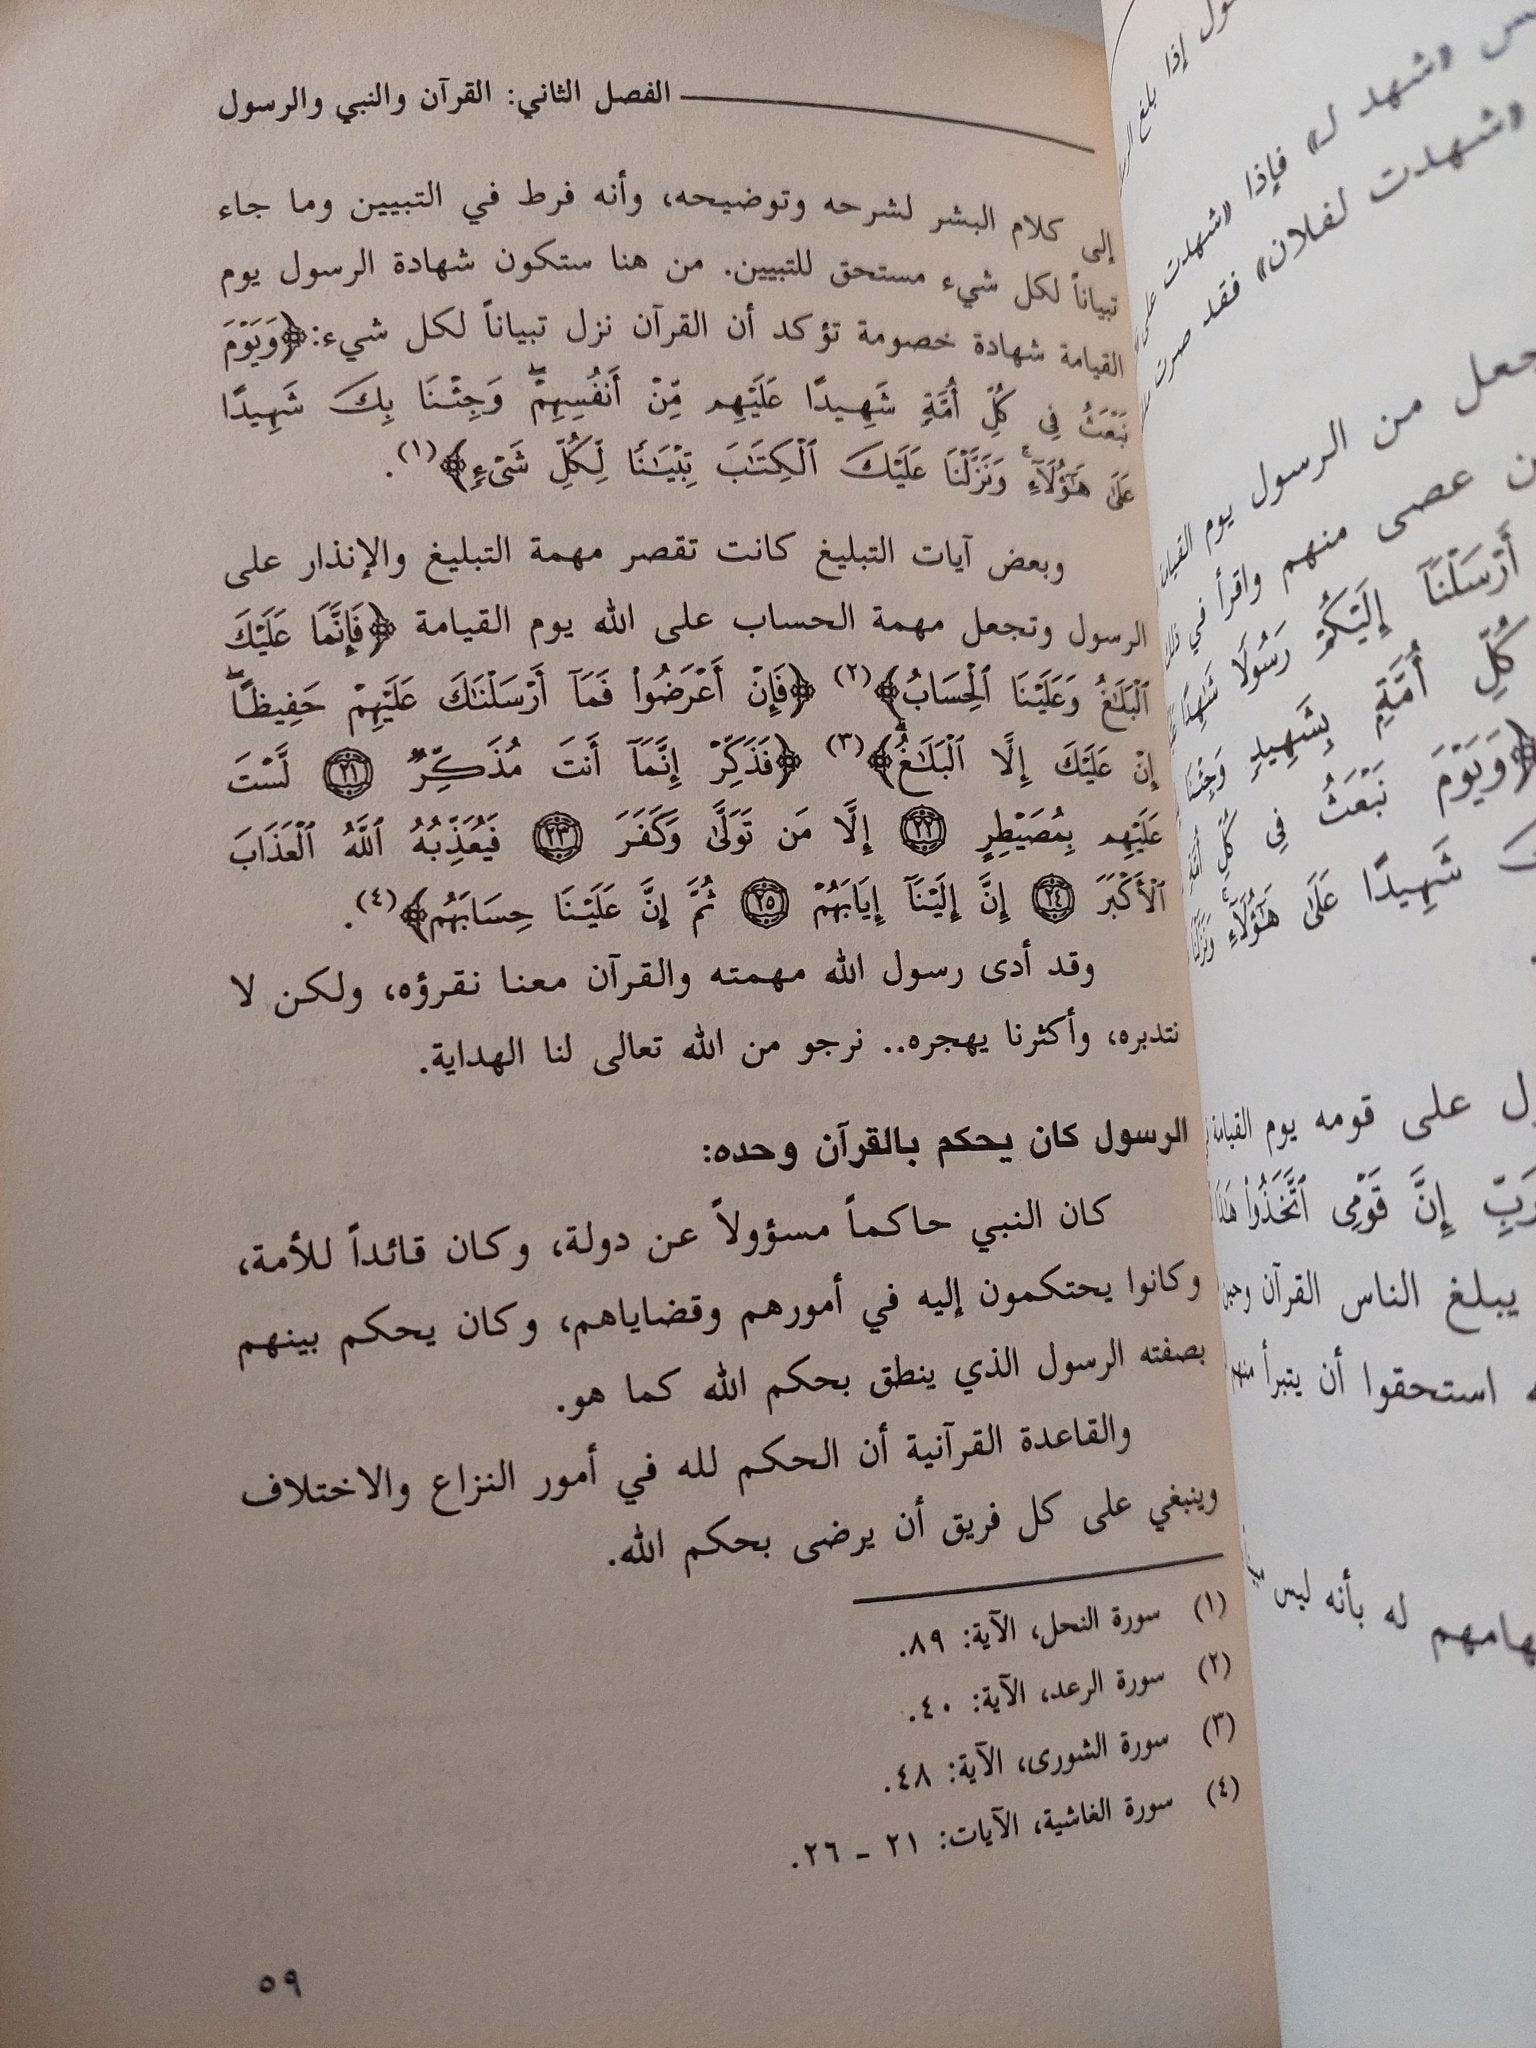 الفصل الثاني: القرآن والنبي والرسول
إلى كلام البشر لشرحه وتوضيحه، وأنه فرط في التبيين وما جاء
تبياناً لكل شيء مستحق للتبيين. من هنا ستكون شهادة الرسول يوم
القيامة شهادة خصومة تؤكد أن القرآن نزل تبياناً لكل شيء: ﴿وَيَوْمَ
نَبْعَثُ فِي كُلِّ أُمَّةٍ شَهِيدًا عَلَيْهِم مِّنْ أَنفُسِهِمْ ۖ وَجِئْنَا بِكَ شَهِيدًا
عَلَىٰ هَٰٓؤُلَآءِ ۚ وَنَزَّلْنَا عَلَيْكَ ٱلْكِتَٰبَ تِبْيَٰنًا لِّكُلِّ شَىْءٍ﴾(١).
وبعض آيات التبليغ كانت تقصر مهمة التبليغ والإنذار على
الرسول وتجعل مهمة الحساب على الله يوم القيامة ﴿فَإِنَّمَا عَلَيْكَ
ٱلْبَلَٰغُ وَعَلَيْنَا ٱلْحِسَابُ﴾(٢) ﴿فَإِنْ أَعْرَضُوا۟ فَمَآ أَرْسَلْنَٰكَ عَلَيْهِمْ حَفِيظًا ۖ
إِنْ عَلَيْكَ إِلَّا ٱلْبَلَٰغُ ۗ﴾(٣) ﴿فَذَكِّرْ إِنَّمَآ أَنتَ مُذَكِّرٌ ۝٢١ لَّسْتَ
عَلَيْهِم بِمُصَيْطِرٍ ۝٢٢ إِلَّا مَن تَوَلَّىٰ وَكَفَرَ ۝٢٣ فَيُعَذِّبُهُ ٱللَّهُ ٱلْعَذَابَ
ٱلْأَكْبَرَ ۝٢٤ إِنَّ إِلَيْنَآ إِيَابَهُمْ ۝٢٥ ثُمَّ إِنَّ عَلَيْنَا حِسَابَهُم﴾(٤).
وقد أدى رسول الله مهمته والقرآن معنا نقرؤه، ولكن لا
نتدبره، وأكثرنا يهجره.. نرجو من الله تعالى لنا الهداية.
الرسول كان يحكم بالقرآن وحده:
كان النبي حاكماً مسؤولاً عن دولة، وكان قائداً للأمة،
وكانوا يحتكمون إليه في أمورهم وقضاياهم، وكان يحكم بينهم
بصفته الرسول الذي ينطق بحكم الله كما هو.
والقاعدة القرآنية أن الحكم لله في أمور النزاع والاختلاف
وينبغي على كل فريق أن يرضى بحكم الله.
(١) سورة النحل، الآية: ٨٩.
(٢) سورة الرعد، الآية: ٤٠.
(٣) سورة الشورى، الآية: ٤٨.
(٤) سورة الغاشية، الآيات: ٢١ ـ ٢٦.
٥٩
إذا بلغ
«شهد لـ» فإذا «شهدت على»
«شهدت لفلان» فقد صرت
من الرسول يوم القيامة
عصى منهم واقرأ في ذلك
أَرْسَلْنَآ إِلَيْكُمْ رَسُولًا شَٰهِدًا
كُلِّ أُمَّةٍ بِشَهِيدٍ وَجِئْنَا
﴿وَيَوْمَ نَبْعَثُ فِي كُلِّ أُمَّةٍ
شَهِيدًا عَلَىٰ هَٰٓؤُلَآءِ ۚ وَنَزَّلْنَا
على قومه يوم القيامة
إِنَّ قَوْمِى ٱتَّخَذُوا۟ هَٰذَا
يبلغ الناس القرآن
استحقوا أن يتبرأ منهم
له بأنه ليس